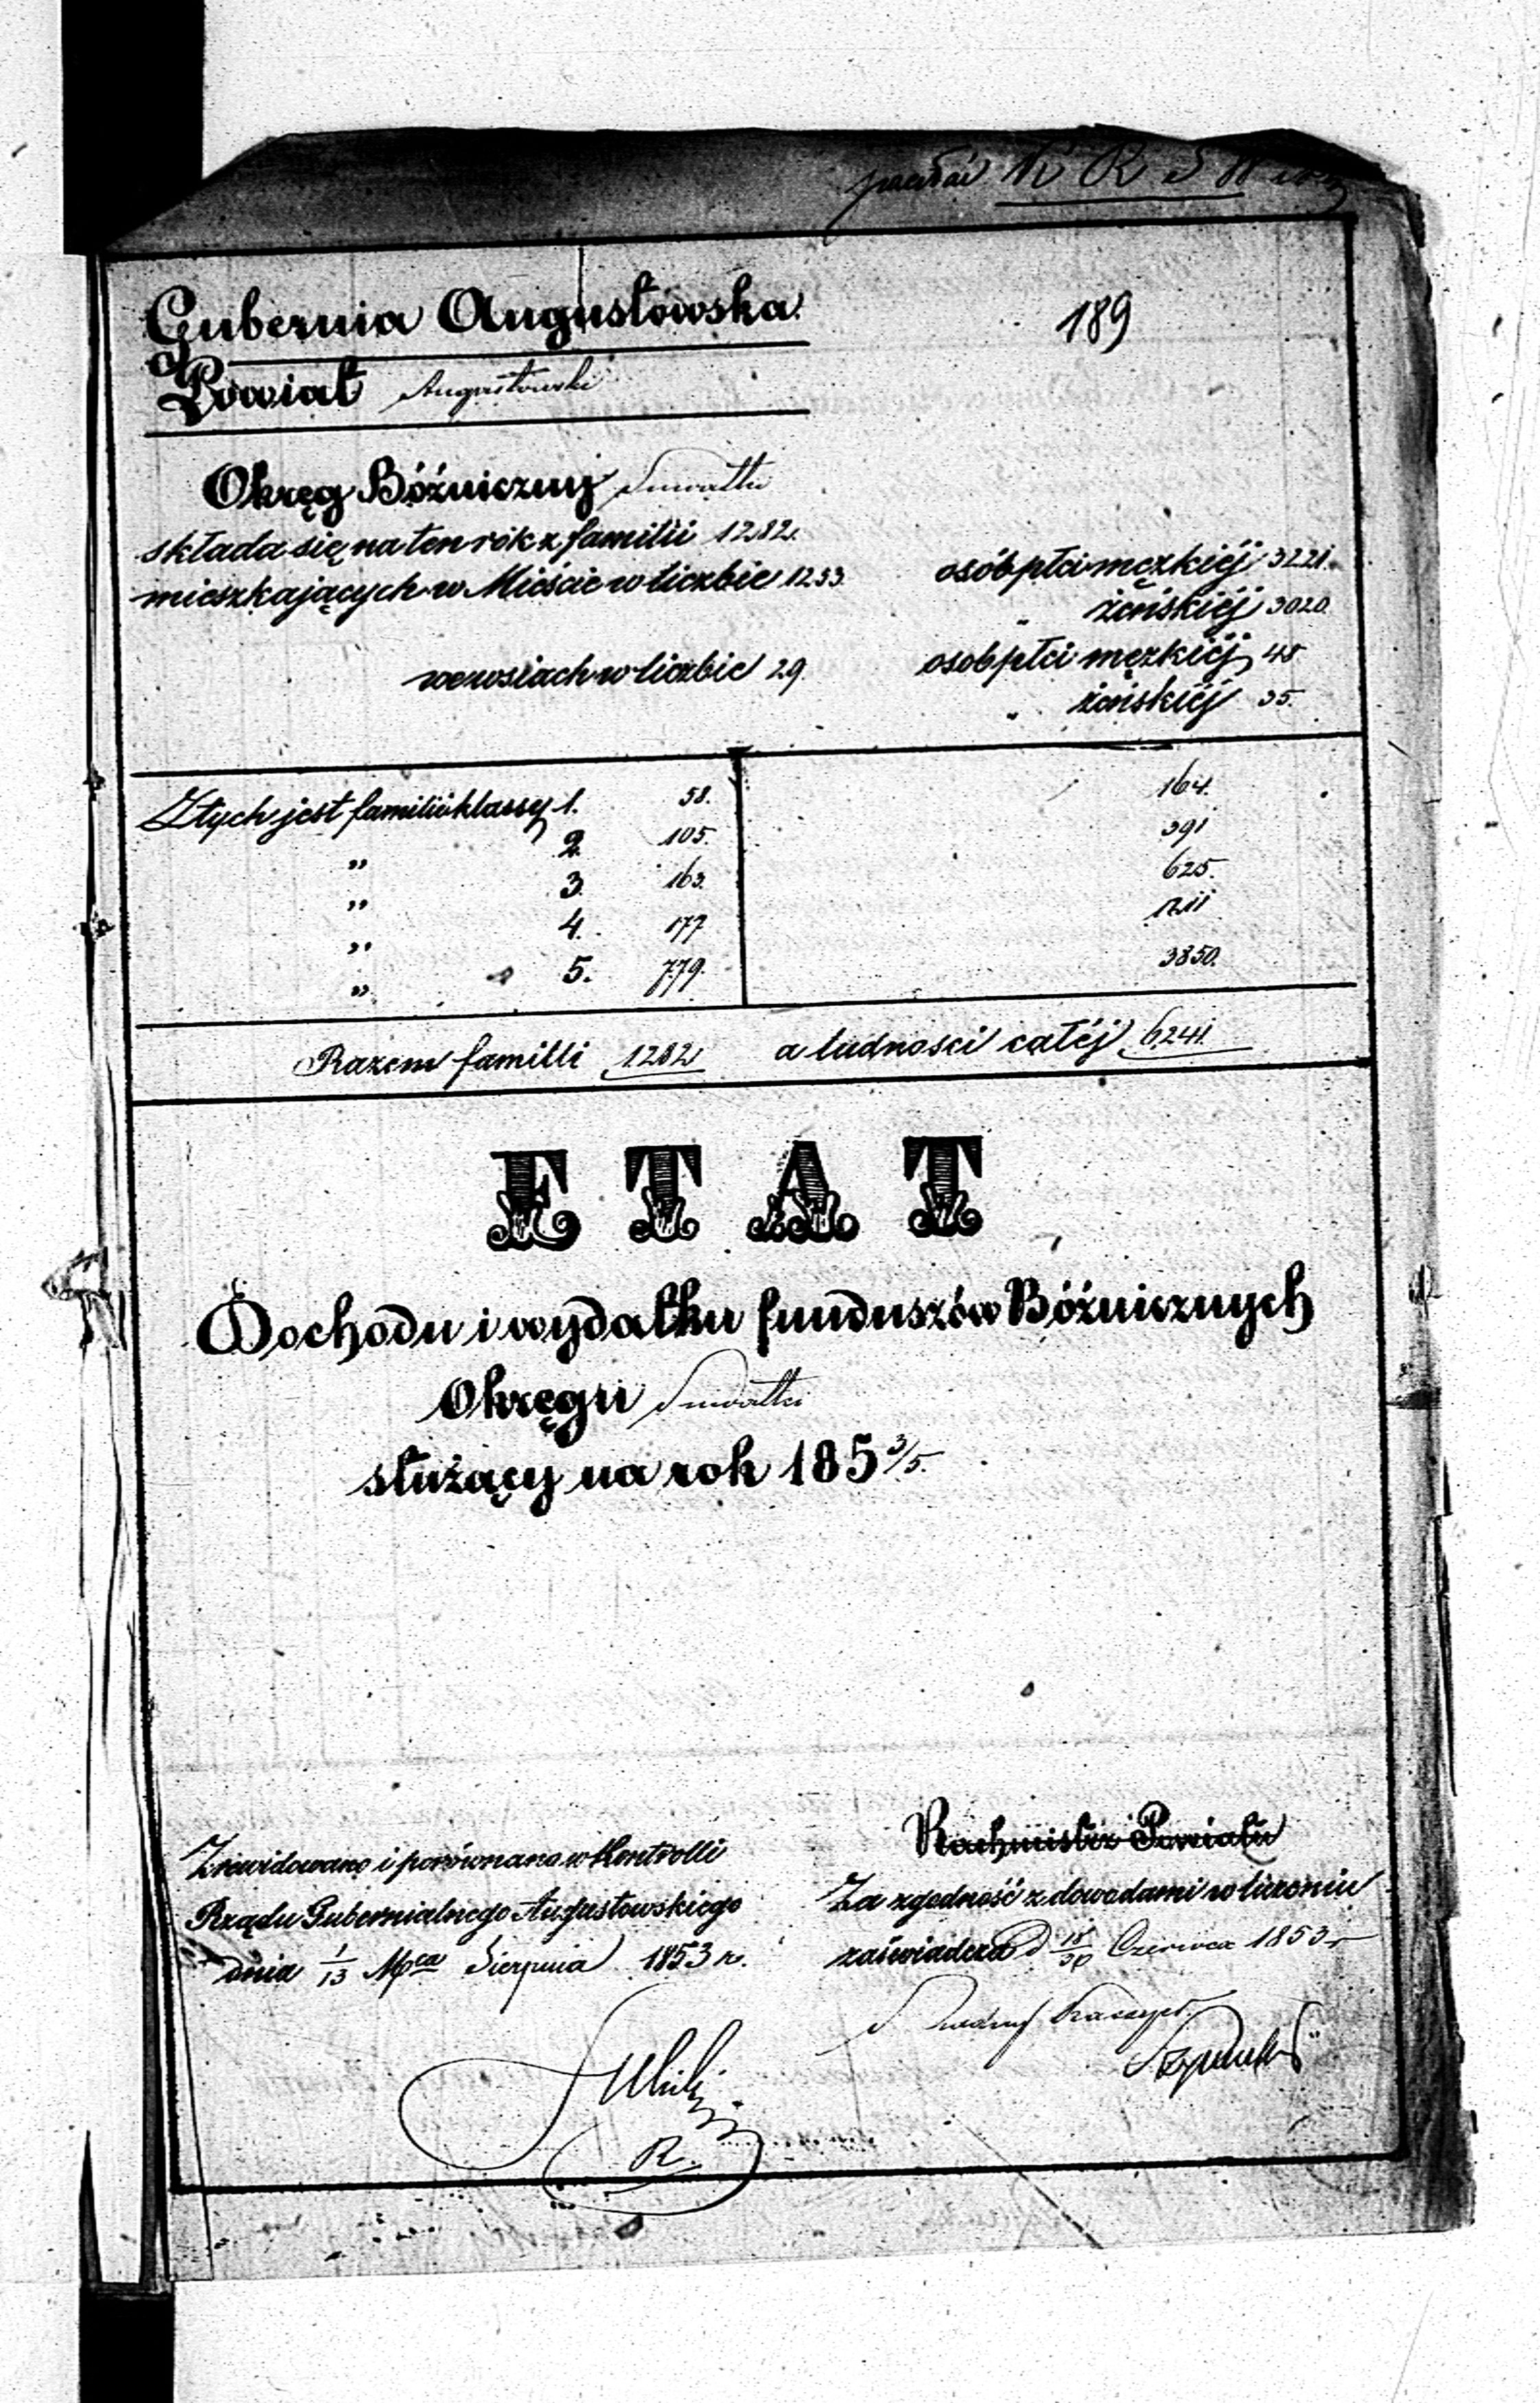 K R S W
189
Gubernia Augustowska
Powiat Augustowski
Okręg Bóźniczny Suwałki
składa się na ten rok z familii 1282.
mieszkających w Mieście w liczbie 1253 osób płci męzkiéj 3221.
" żeńskiéj 3020.
we wsiach w liczbie 29. osób płci męzkiéj 48
" żeńskiéj 35.
Z tych jest familii klassy 1. 58. 164.
" 2. 105. 391
" 3. 163. 625.
" 4. 177 1211
" 5. 779. 3850.
Razem familii 1282 a ludności całéj 6241.
ETAT
Dochodu i wydatku funduszów Bóźnicznych
Okręgu Suwałki
służący na rok 185 3/5.
Rachmistrz Powiatu
Zrewidowano i porównano w Kontrolli
Rządu Gubernialnego Augustowskiego
dnia 1/13 Mca Sierpnia 1853 r.
Za zgodność z dowodami w liczeniu
zaświadcza d 18/30 Czerwca 1853 r
R.